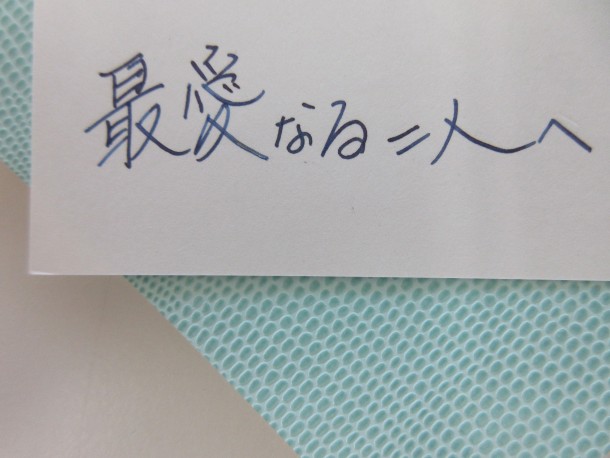 最愛なる二人へ